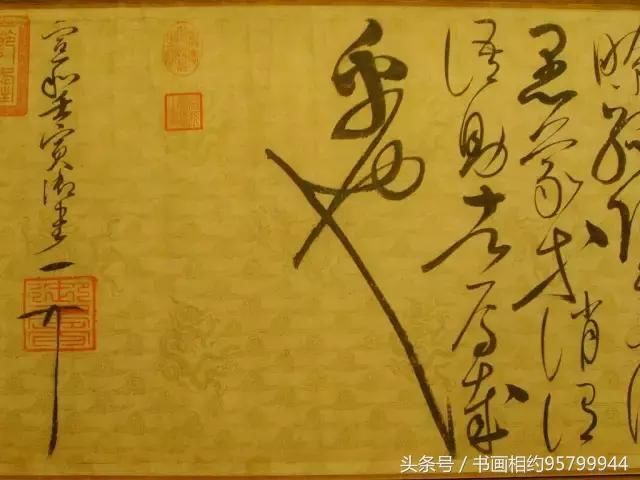 眺孤陋
愚蒙等誚謂
語助者焉哉
乎也
宣和壬寅御書
头条号 / 书画相约95799944